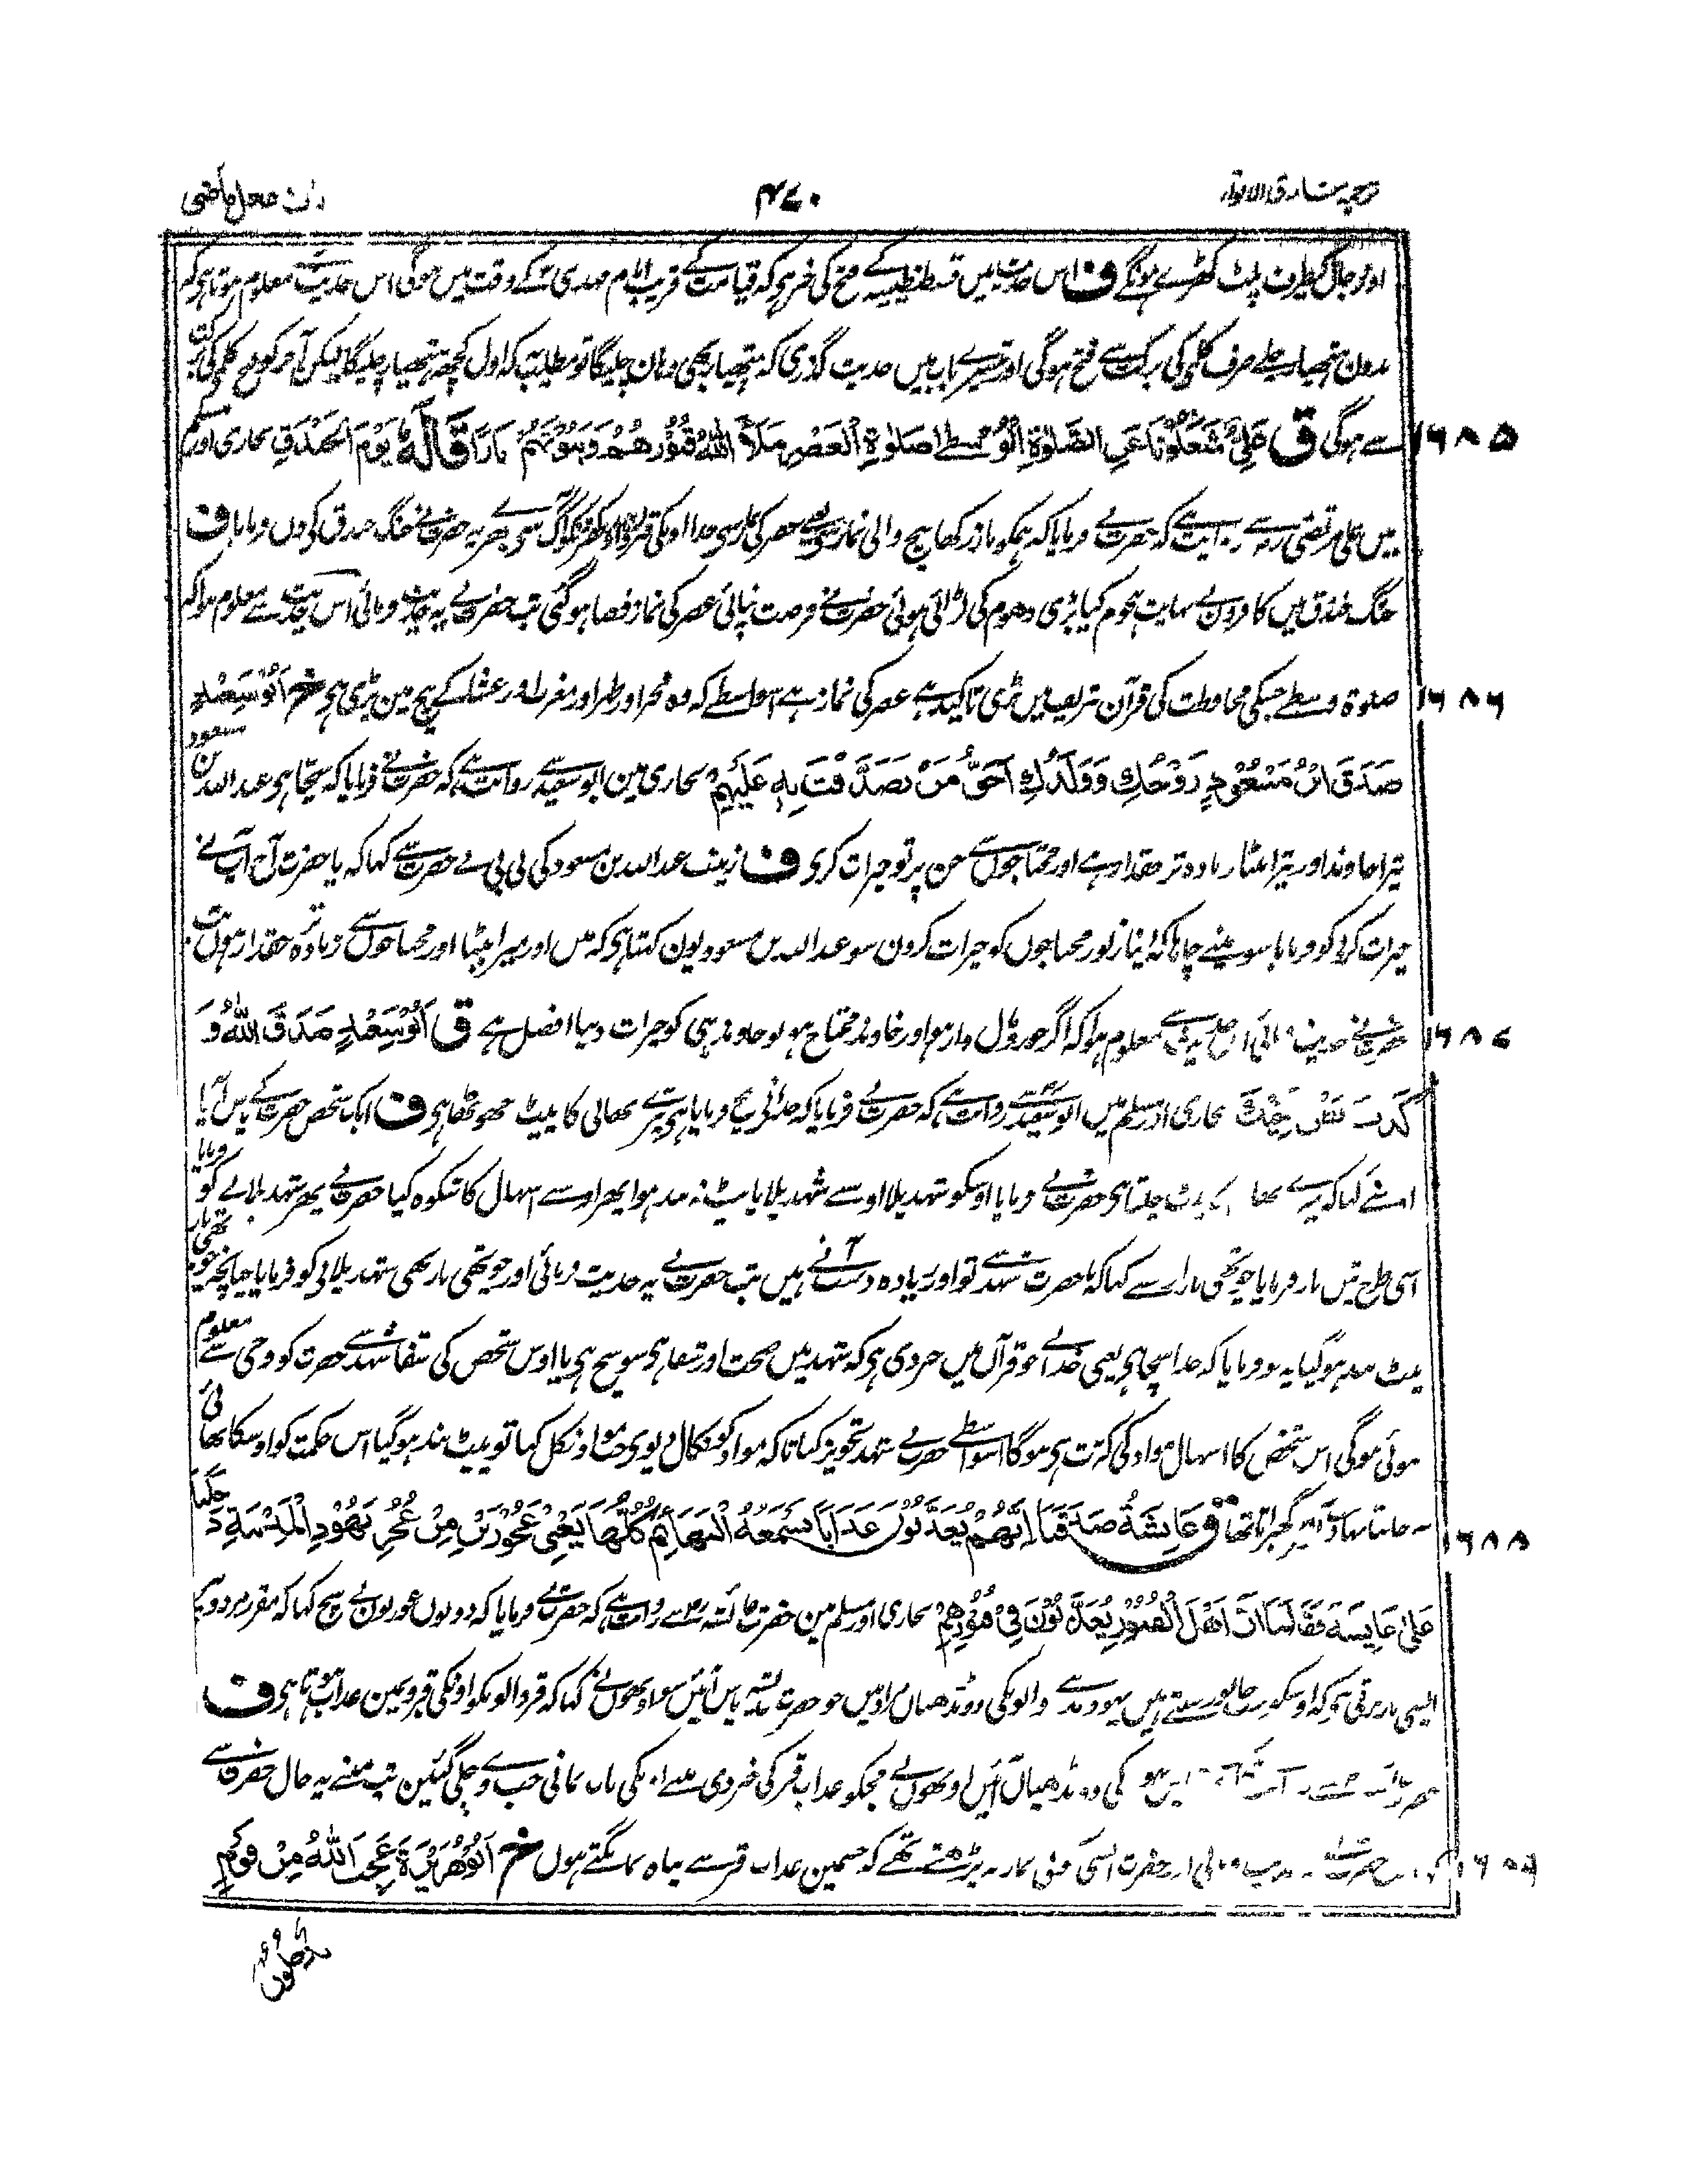 ترجمہ مشارق الانوار
۴۷۰
فعل ماضی
اور دجال کیطرف پلٹ کھڑے ہونگے ف اس حدیث میں قسطنطنیہ کے فتح کی خبر ہی کہ قیامت کے قریب امام مہدی کے وقت میں ہوگی اس حدیث معلوم ہوتا ہی کہ
بدون ہتھیار چلے صرف کلمے کی برکت سے فتح ہوگی اور تیسرے باب میں حدیث گذری کہ ہتھیار بھی وہان چلیگا تو مطلب کہ اول کچھ ہتھیار چلیگا لیکن آخر کو فتح کلمے کی برکت
۱۶۸۵
سے ہوگی ق عَلِیٌّ شَغَلُوْنَا عَنِ الصَّلٰوةِ الْوُسْطٰی صَلٰوةِ الْعَصْرِ مَلَأَ اللّٰهُ قُبُوْرَهُمْ وَبُیُوْتَهُمْ نَارًا قَالَهٗ یَوْمَ الْخَنْدَقِ بخاری اور مسلم
میں علی مرتضی رضہ سے روایت ہے کہ حضرت نے فرمایا کہ ہمکو باز رکھا بیچ والی نماز سے یعنی عصر کی نماز سے خدا اونکی قبروں اور گھروں کو آگ سے بھرے یہ حضرت نے جنگ خندق کی دن فرمایا ف
جنگ خندق میں کافرون نے نہایت ہجوم کیا بڑی دھوم کی لڑائی ہوئی حضرت نے فرصت نپائی عصر کی نماز قضا ہو گئی تب حضرت نے یہ حدیث فرمائی اس حدیث سے معلوم ہوا کہ
۱۶۸۶
صلوة وسطے جسکی محافظت کی قرآن شریف میں بڑی تاکید ہے عصر کی نماز ہے اسواسطے کہ وہ فجر اور ظہر اور مغرب اور عشا کے بیچ مین پڑی ہی خ اَبُوْ سَعِیْدٍ
صَدَقَ ابْنُ مَسْعُوْدٍ زَوْجُكِ وَوَلَدُكِ اَحَقُّ مَنْ تَصَدَّقْتِ بِهٖ عَلَیْهِمْ بخاری مین ابو سعید سے روایت ہے کہ حضرت نے فرمایا کہ سچا ہی عبد اللہ بن مسعود
تیرا خاوند اور تیرا بیٹا زیادہ تر حقدار ہے اور محتاجوں سے جن پر تو خیرات کری ف زینب عبد اللہ بن مسعود کی بی بی نے حضرت سے کہا کہ یا حضرت آج آپ نے
خیرات کرنے کو فرمایا سو مینے چاہا کہ اپنا زیور محتاجوں کو خیرات کرون سو عبد اللہ بن مسعود یون کہتا ہی کہ میں اور میرا بیٹا اور محتاجوں سے زیادہ تر حقدار ہوں تب
۱۶۸۷
حضرت نے حدیث فرمائی اس حدیث سے معلوم ہوا کہ اگر جورو مال دار ہو اور خاوند محتاج ہو تو خاوند ہی کو خیرات دینا افضل ہے ق اَبُوْ سَعِیْدٍ صَدَقَ اللّٰهُ وَ
كَذَبَ بَطْنُ اَخِیْكَ بخاری اور مسلم میں ابو سعید سے روایت ہے کہ حضرت نے فرمایا کہ خدا نے سچ فرمایا ہی تیرے بھائی کا پیٹ جھوٹھا ہی ف ایک شخص حضرت کے پاس آیا
اسنے کہا کہ میرے بھائی کا پیٹ چلتا ہی حضرت نے فرمایا اوسکو شہد پلا اوسے شہد پلایا پیٹ نہ بند ہوا پھر اوسے اسہال کا شکوہ کیا حضرت نے پھر شہد پلانے کو فرمایا
اسی طرح تین بار فرمایا چوتھی بار اسے کہا کہ یا حضرت شہد سے تو اور زیادہ دست آتے ہیں تب حضرت نے یہ حدیث فرمائی اور چوتھی بار بھی شہد پلانے کو فرمایا چنانچہ چوتھی بار
پیٹ بند ہو گیا یہ جو فرمایا کہ خدا سچا ہی یعنی خدا نے جو قرآن میں خبر دی ہی کہ شہد میں صحت اور شفا ہی سو سچ ہی یا اوس شخص کی شفا شہد سے حضرت کو وحی سے معلوم
ہوئی ہوگی اس شخص کا اسہال مواد کی کثرت سے ہوگا اسواسطے حضرت نے شہد تجویز کیا تاکہ مواد کو نکال دیوی جب مواد نکل گیا تو پیٹ بند ہو گیا اس حکمت کو اوسکا بھائی
۱۶۸۸
نہ جانتا تھا گھبراتا تھا ق عَایِشَةُ صَدَقَتَا اِنَّهُمْ یُعَذَّبُوْنَ عَذَابًا تَسْمَعُهُ الْبَهَائِمُ كُلُّهَا یَعْنِیْ عَجُوْزَیْنِ مِنْ عُجُزِ یَهُوْدِ الْمَدِیْنَةِ دَخَلَتَا
عَلٰی عَایِشَةَ فَقَالَتَا اِنَّ اَهْلَ الْقُبُوْرِ یُعَذَّبُوْنَ فِیْ قُبُوْرِهِمْ بخاری اور مسلم مین حضرت عائشہ رضہ سے روایت ہے کہ حضرت نے فرمایا کہ دونوں عورتوں نے سچ کہا کہ مقرر مردوں پر
ایسی مار پڑتی ہی کہ اوسکو سب جانور سنتے ہیں یہود مدینے والونکی دو بڈھیاں مراد ہیں جو حضرت عائشہ پاس آئیں سو اونھوں نے کہا کہ قبر والونکو اونکی قبرون مین عذاب ہوتا ہی ف
کی دو بڈھیاں آئیں اونھوں نے مجکو عذاب قبر کی خبر دی مینے اونکی بات نمانی جب وے چلی گئین تب مینے یہ حال حضرت سے
۱۶۸۹
حضرت ایسی کوئی نماز نہ پڑھتے تھے کہ جسمین عذاب قبر سے پناہ نمانگتے ہوں خ اَبُوْ هُرَیْرَةَ عَجِبَ اللّٰهُ مِنْ قَوْمٍ
یدخلون